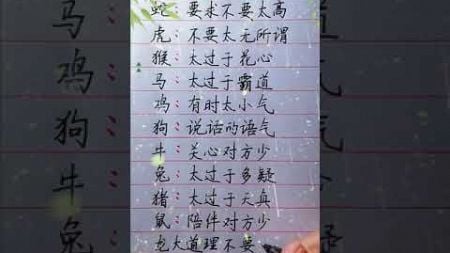 蛇：要求不要太高
虎：不要太无所谓
猴：太过于花心
马：太过于霸道
鸡：有时太小气
狗：说话的语气
牛：关心对方少
兔：太过于多疑
猪：太过于天真
鼠：陪伴对方少
龙大道理不要